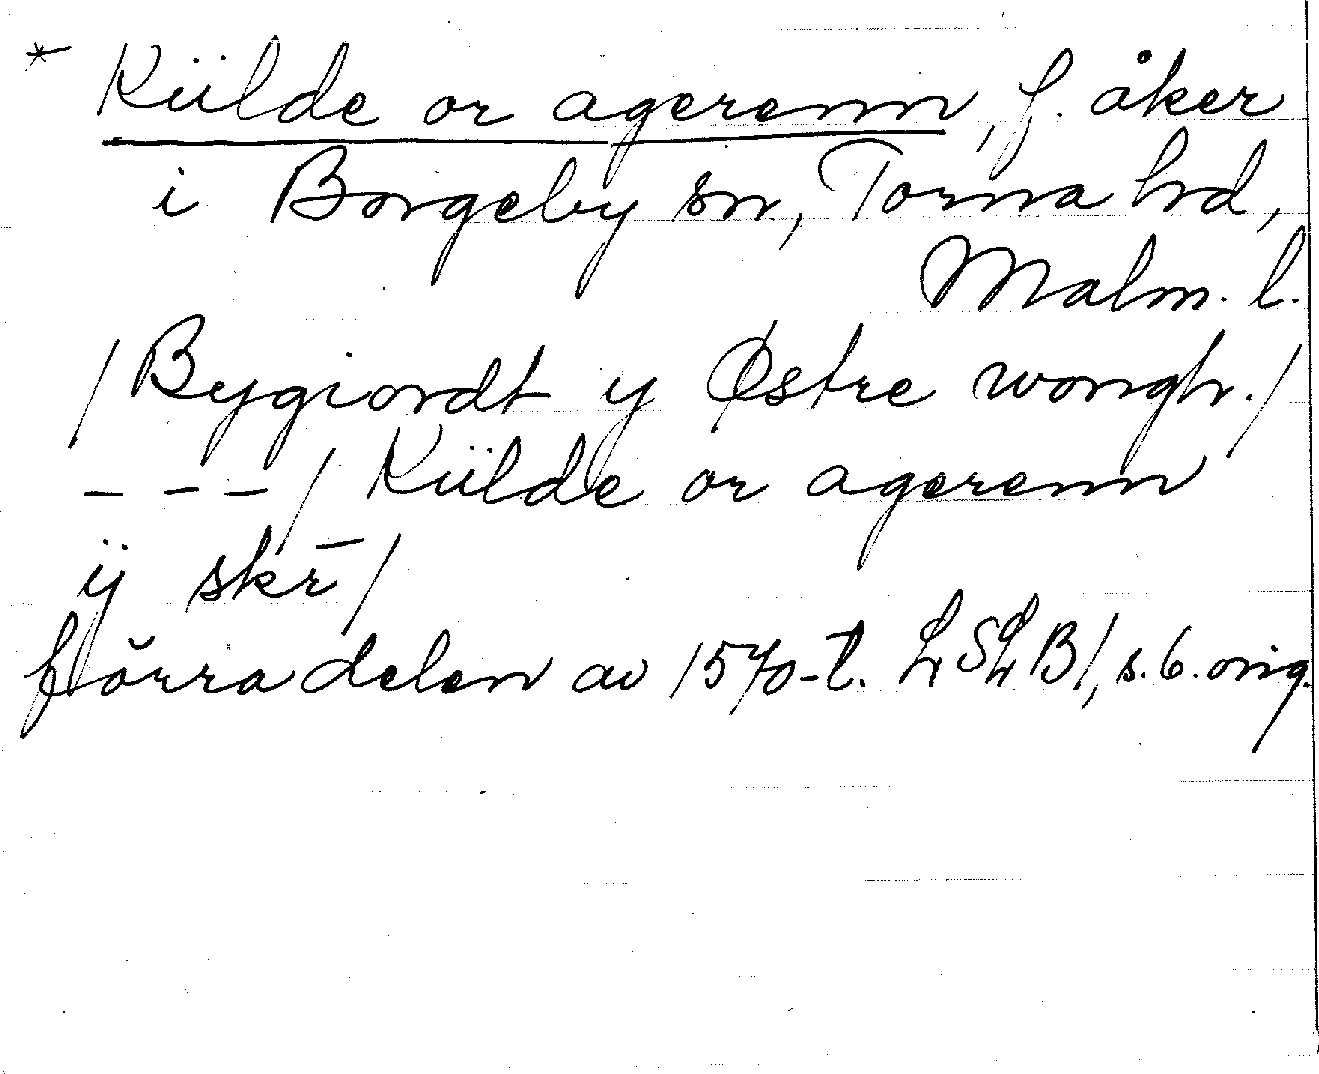 * Kiilde or agerenn, f. åker
i Borgeby sn, Torna hd,
Malm. l.
/Bygiordt y Østre wongh./
- - -/ Kiilde or agerenn
ÿ skr̄/
förra delen av 1570-t. LSLB1, s. 6. orig.